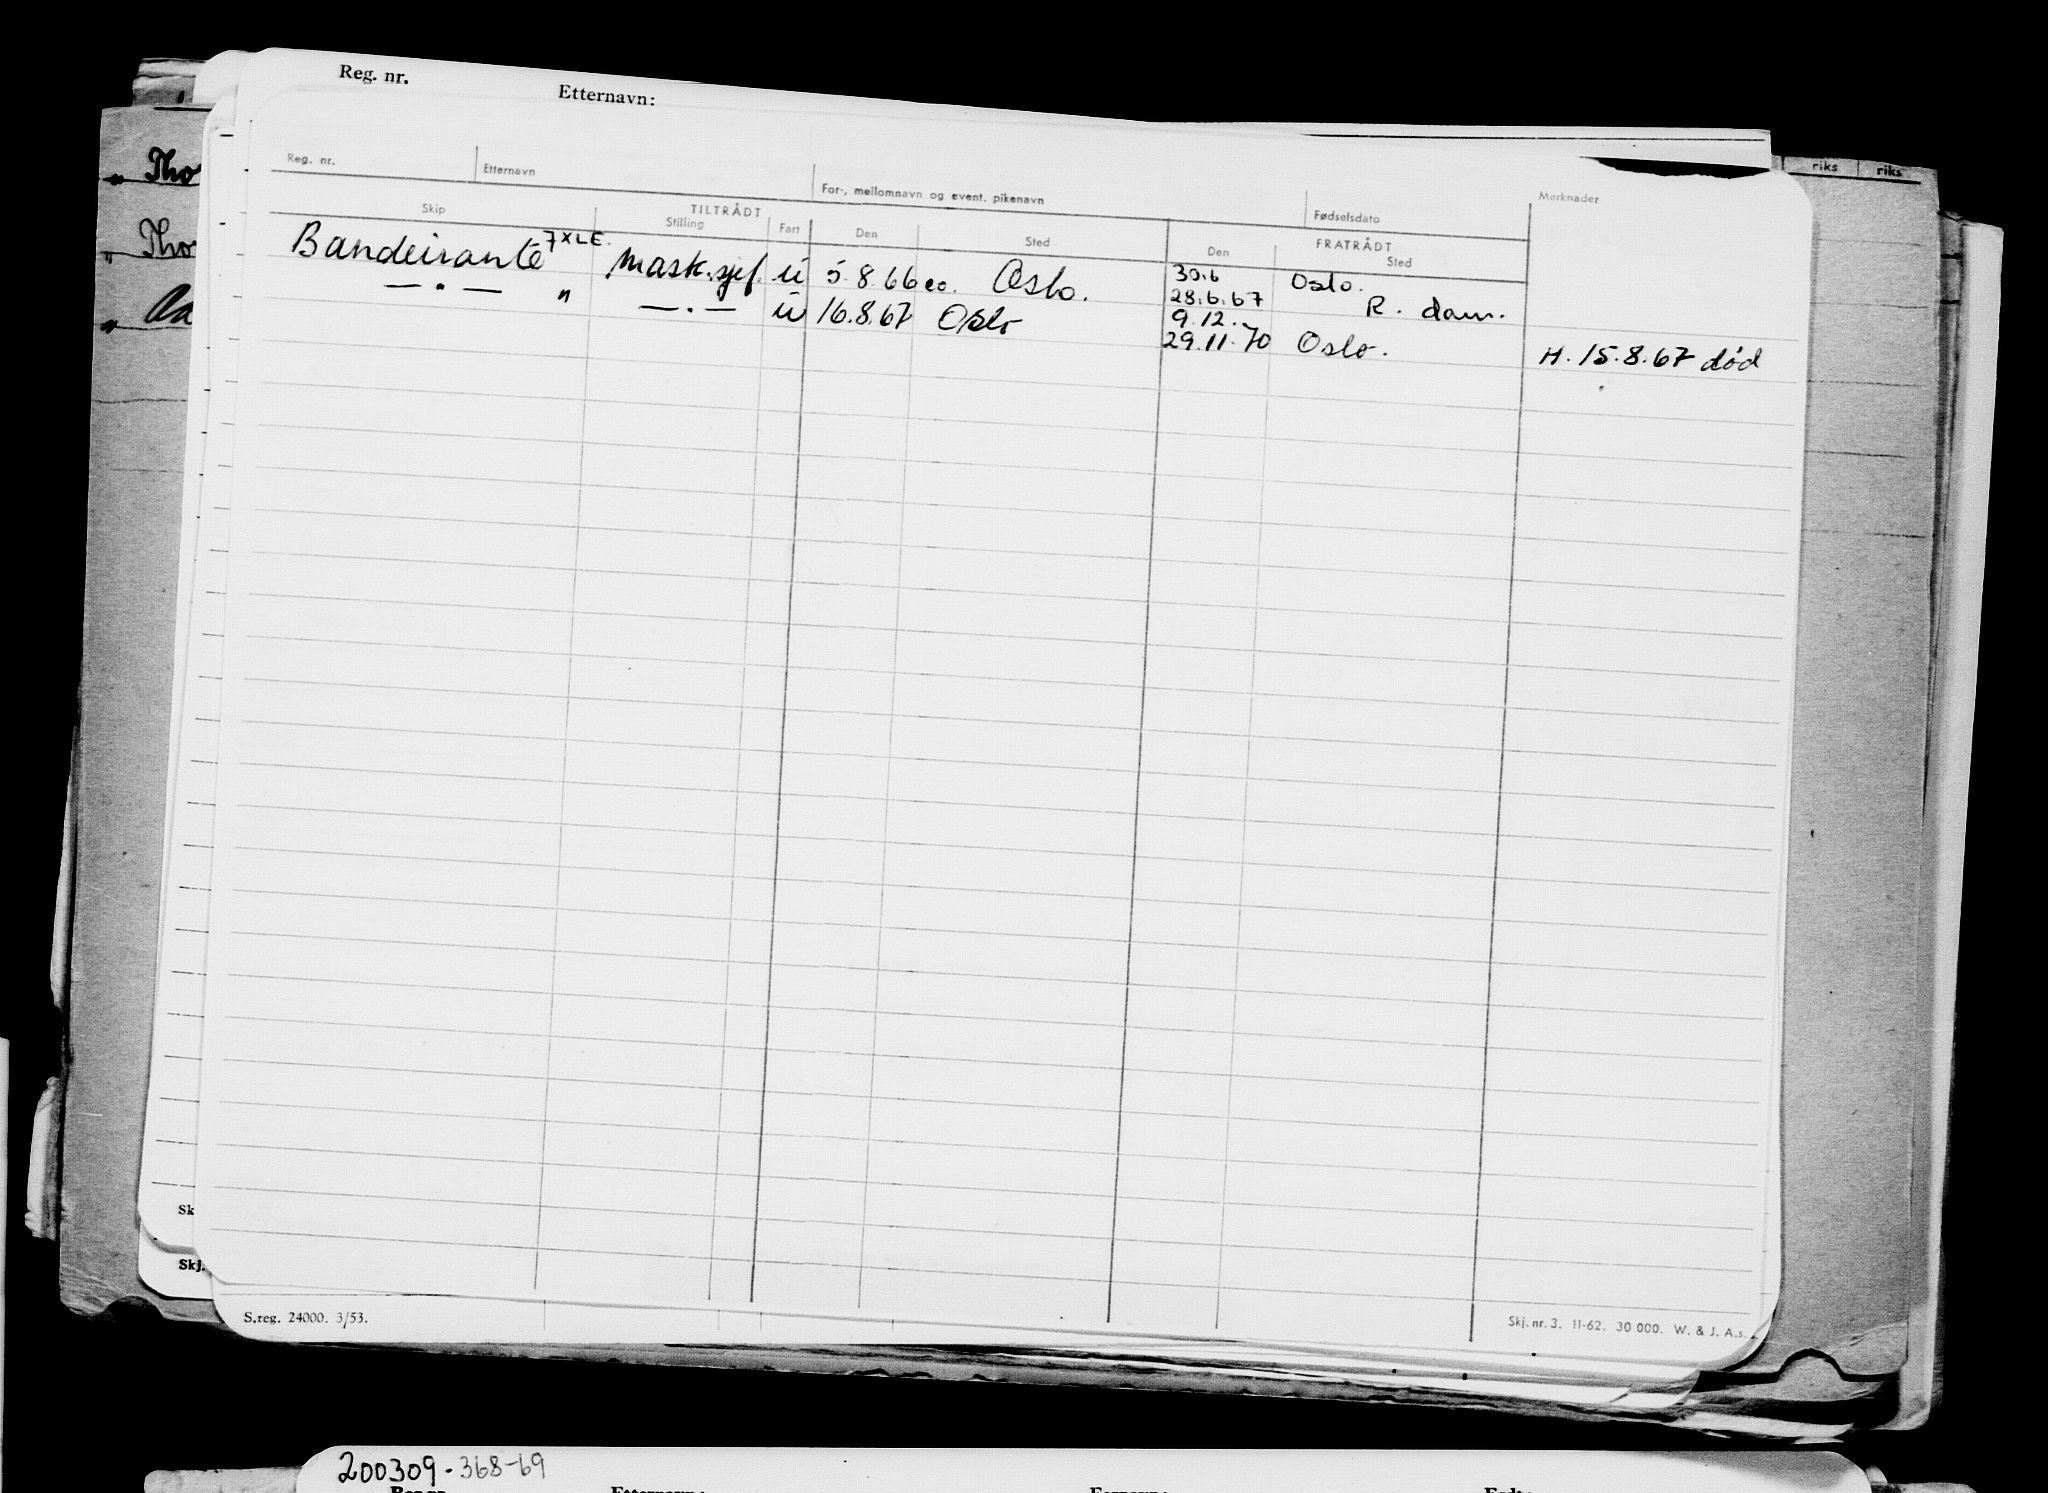 Reg. nr. Etternavn:
Tho riks riks
Tho
Aa
Reg. nr. Etternavn For-, mellomnavn og event. pikenavn Fødselsdato Merknader
TILTRÅDT FRATRÅDT
Skip Stilling Fart Den Sted Den Sted
Bandeirante 7XLE. Mask.sjef. U 5.8.66 eo. Oslo. 30.6 Oslo.
28.6.67 R. dam.
— " — " — . — U 16.8.67 Oslo 9.12.
29.11.70 Oslo. H. 15.8.67 død
Sk
Skj.
S.reg. 24000. 3/53. Skj. nr. 3. 11-62. 30 000. W. & J. A.s.
200309-368-69
Reg.nr. Etternavn: Fornavn: Født: